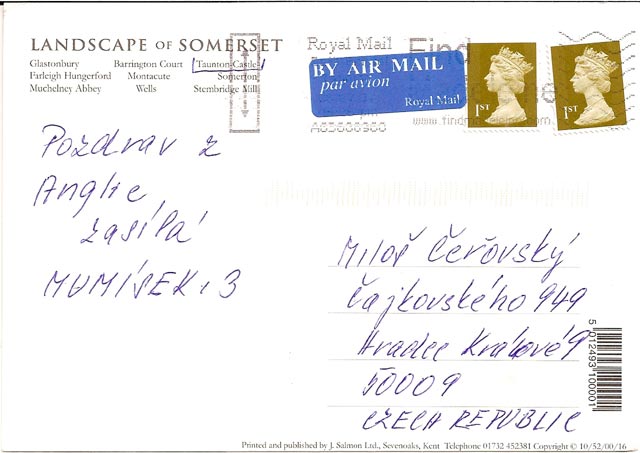 LANDSCAPE OF SOMERSET
Glastonbury Barrington Court Taunton Castle
Farleigh Hungerford Montacute Somerton
Muchelney Abbey Wells Stembridge Mill
Royal Mail Find
BY AIR MAIL
par avion
Royal Mail
1ST
1ST
Pozdrav z
Anglie
zasílá
MUMÍSEK. 3
Miloš Čeřovský
Čajkovského 949
Hradec Králové 9
50009
CZECH REPUBLIC
5 012493 100001
Printed and published by J. Salmon Ltd., Sevenoaks, Kent Telephone 01732 452381 Copyright © 10/52/00/16